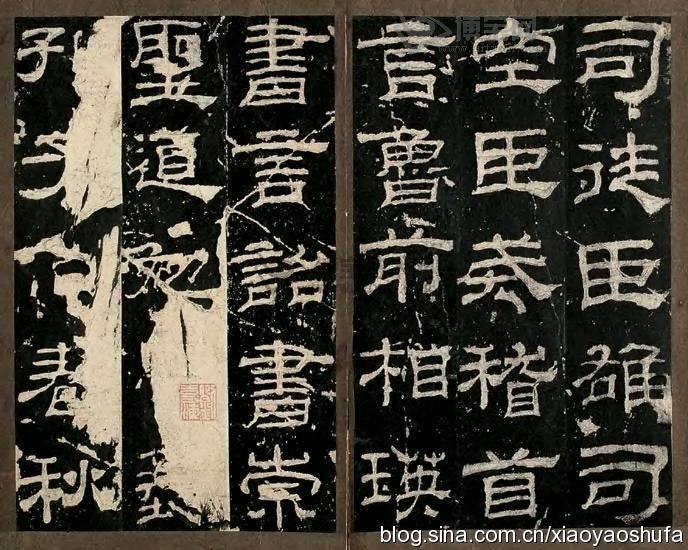 司徒臣雄司
空臣戒稽首
言魯前相瑛
書言詔書崇
聖道勉藝
孔子作春秋
blog.sina.com.cn/xiaoyaoshufa